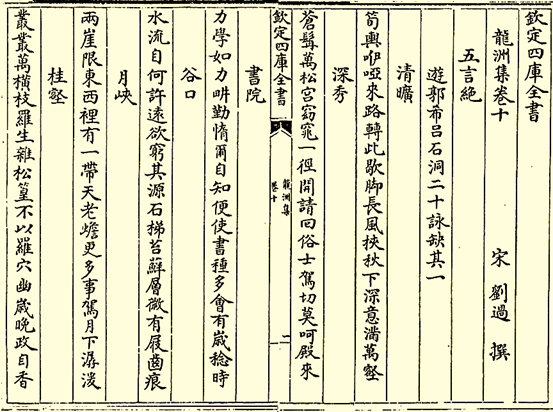 欽定四庫全書
龍洲集卷十
宋 劉過 撰
五言絶
遊郭希呂石洞二十詠缺其一
清曠
筍輿咿啞來路轉此歇脚長風挾秋下深意滿萬壑
深秀
蒼髯萬松宫窈窕一徑開請回俗士駕切莫呵殿來
欽定四庫全書
龍洲集
卷十
二
書院
力學如力畊勤惰爾自知便使書種多會有歲稔時
谷口
水流自何許遠欲窮其源石梯苔蘚層微有屐齒痕
月峽
兩崖限東西裡有一帶天老蟾更多事駕月下潺湲
桂壑
叢叢萬橫枝羅生雜松篁不以羅穴幽歲晚政自香